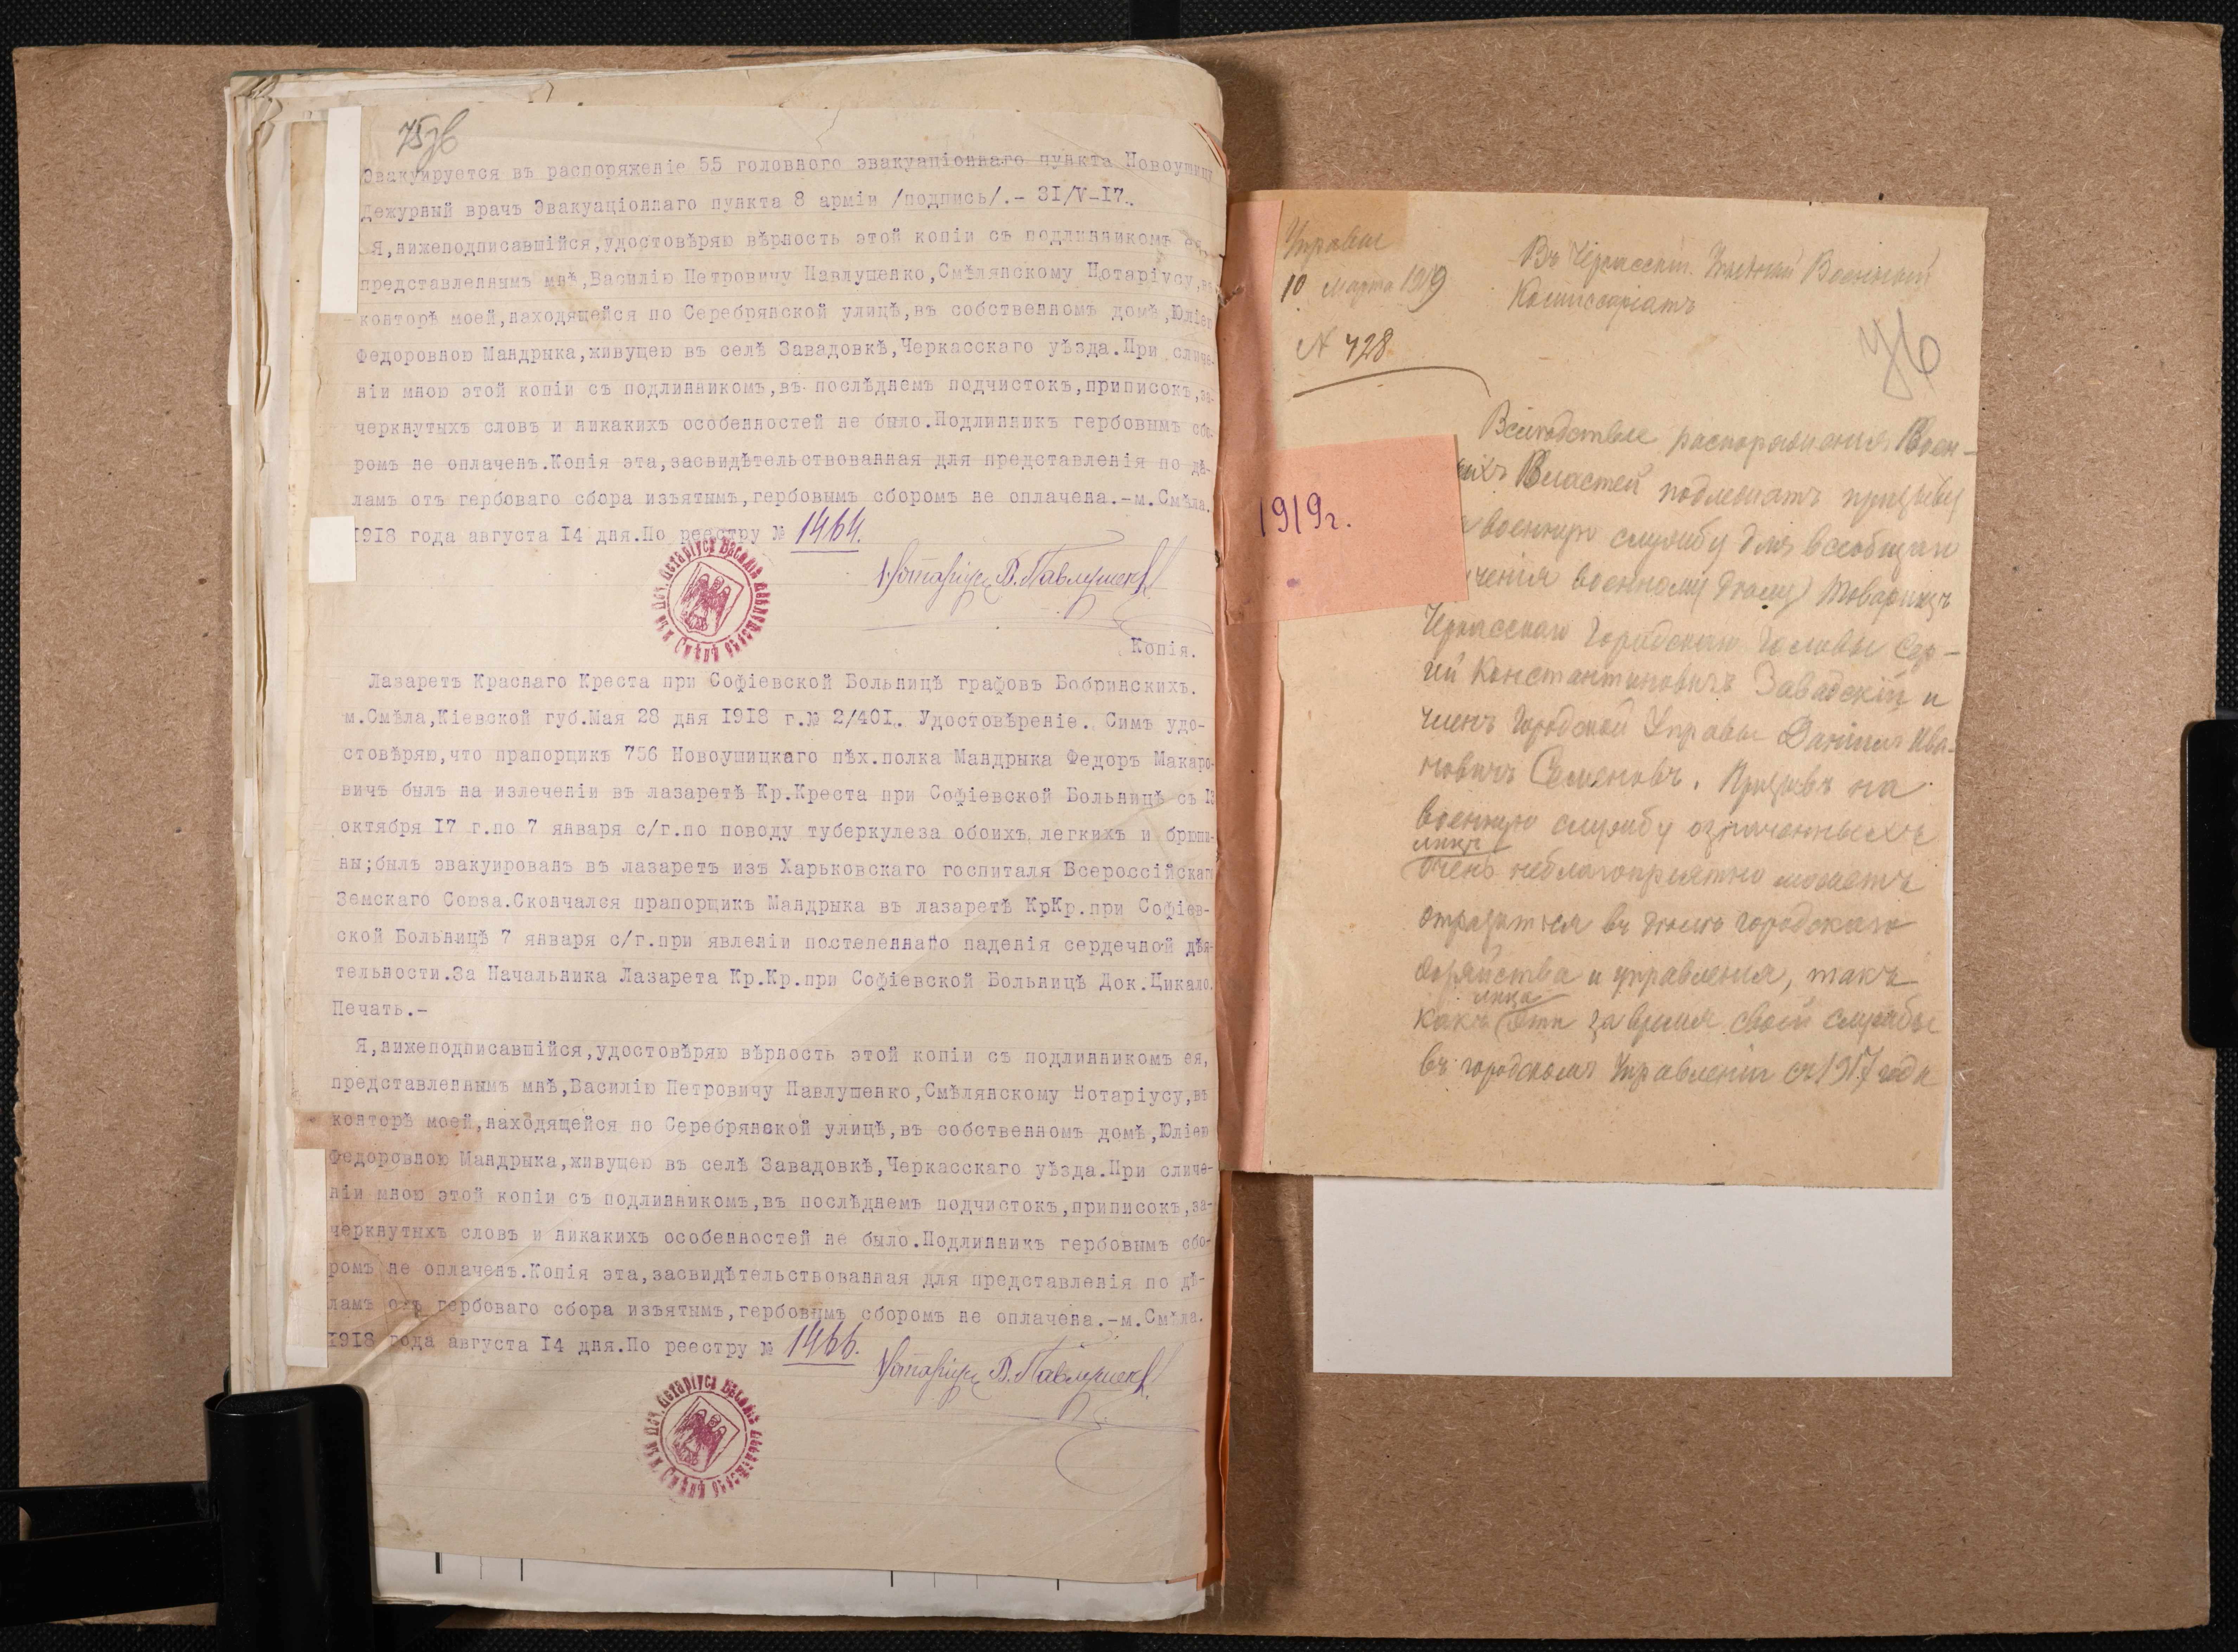 75зв
Эвакуируется въ распоряженіе 55 головного эвакуаціоннаго пункта Новоушиц
Дежурный врачъ Эвакуаціоннаго пункта 8 арміи /подпись/.- 31/V-17.
Я,нижеподписавшійся,удостовѣряю вѣрность этой копіи съ подлинникомъ ея,
представленнымъ мнѣ,Василію Петровичу Павлушенко,Смѣлянскому Нотаріусу,въ
конторѣ моей,находящейся по Серебрянской улицѣ,въ собственномъ домѣ,Юліею
Федоровною Мандрыка,живущею въ селѣ Завадовкѣ,Черкасскаго уѣзда.При сличе-
ніи мною этой копіи съ подлинникомъ,въ послѣднемъ подчистокъ,приписокъ,за-
черкнутыхъ словъ и никакихъ особенностей не было.Подлинникъ гербовымъ сбо-
ромъ не оплаченъ.Копія эта,засвидѣтельствованная для представленія по дѣ-
ламъ отъ гербоваго сбора изъятымъ,гербовымъ сборомъ не оплачена.-м.Смѣла.
1918 года августа 14 дня.По реестру № 1464.
Нотаріусъ В. Павлушенко
Копія.
Лазаретъ Краснаго Креста при Софіевской Больницѣ графовъ Бобринскихъ.
м.Смѣла,Кіевской губ.Мая 28 дня 1918 г.№ 2/401. Удостовѣреніе. Симъ удо-
стовѣряю,что прапорщикъ 756 Новоушицкаго пѣх.полка Мандрыка Федоръ Макаро-
вичъ былъ на излеченіи въ лазаретѣ Кр.Креста при Софіевской Больницѣ съ
октября 17 г.по 7 января с/г.по поводу туберкулеза обоихъ легкихъ и брюши-
ны;былъ эвакуированъ въ лазаретъ изъ Харьковскаго госпиталя Всероссійскаго
Земскаго Союза.Скончался прапорщикъ Мандрыка въ лазаретѣ КрКр.при Софіев-
ской Больницѣ 7 января с/г.при явленіи постепеннаго паденія сердечной дѣя-
тельности.За Начальника Лазарета Кр.Кр.при Софіевской Больницѣ Док.Цикало.
Печать.-
Я,нижеподписавшійся,удостовѣряю вѣрность этой копіи съ подлинникомъ ея,
представленнымъ мнѣ,Василію Петровичу Павлушенко,Смѣлянскому Нотаріусу,въ
конторѣ моей,находящейся по Серебрянской улицѣ,въ собственномъ домѣ,Юліею
Федоровною Мандрыка,живущею въ селѣ Завадовкѣ,Черкасскаго уѣзда.При сличе-
ніи мною этой копіи съ подлинникомъ,въ послѣднемъ подчистокъ,приписокъ,за-
черкнутыхъ словъ и никакихъ особенностей не было.Подлинникъ гербовымъ сбо-
ромъ не оплаченъ.Копія эта,засвидѣтельствованная для представленія по дѣ-
ламъ отъ гербоваго сбора изъятымъ,гербовымъ сборомъ не оплачена.-м.Смѣла.
1918 года августа 14 дня.По реестру № 1466.
Нотаріусъ В. Павлушенко
Управы
10 марта 1919
N 428
Въ Черкасскій Уѣздный Военный
Комиссаріатъ
76
1919г.
Вслѣдствіе распоряженія Воен-
ныхъ Властей подлежатъ призыву
военную службу для всеобщаго
ученія военному дѣлу) Товарищъ
Черкасскаго Городского Головы Сер-
гій Константиновичъ Завадскій и
членъ Городской Управы Даніилъ Ива-
новичъ Семеновъ. Призывъ на
военную службу означенныхъ
лицъ
очень неблагопріятно можетъ
отразиться въ дѣлѣ городского
хозяйства и управленія, такъ
лица
какъ эти за время своей службы
въ городскомъ Управленіи съ 1917 года